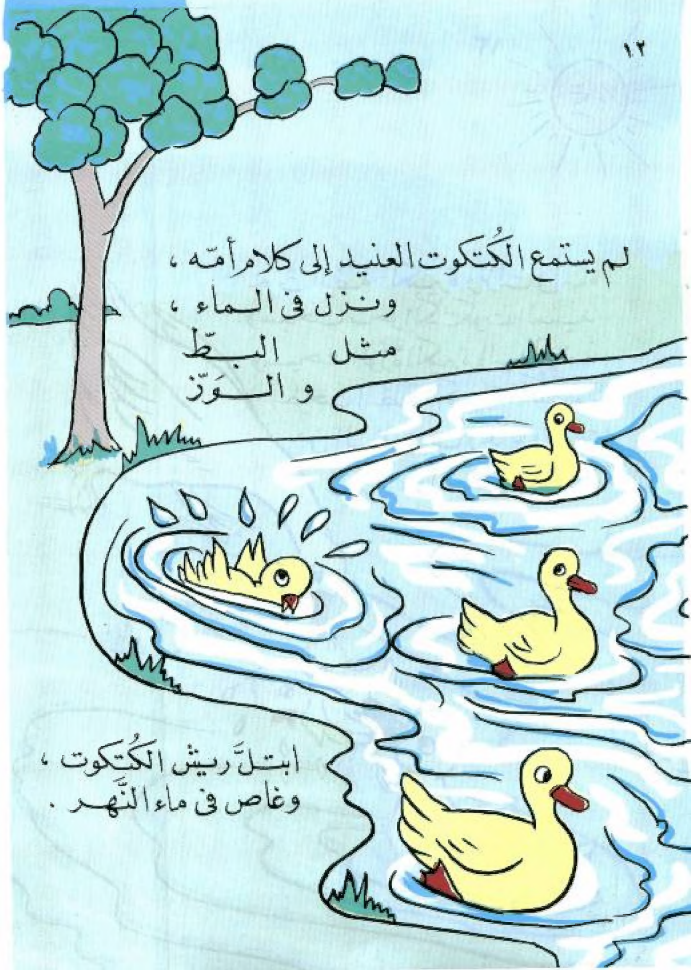 ١٢
لم يستمع الكُتكوت العنيد إلى كلام أمّه ،
ونزل فى الماء ،
مثل البطّ
و الوَزّ
ابتلَّ ريش الكُتكوت ،
وغاص فى ماء النَّهر .